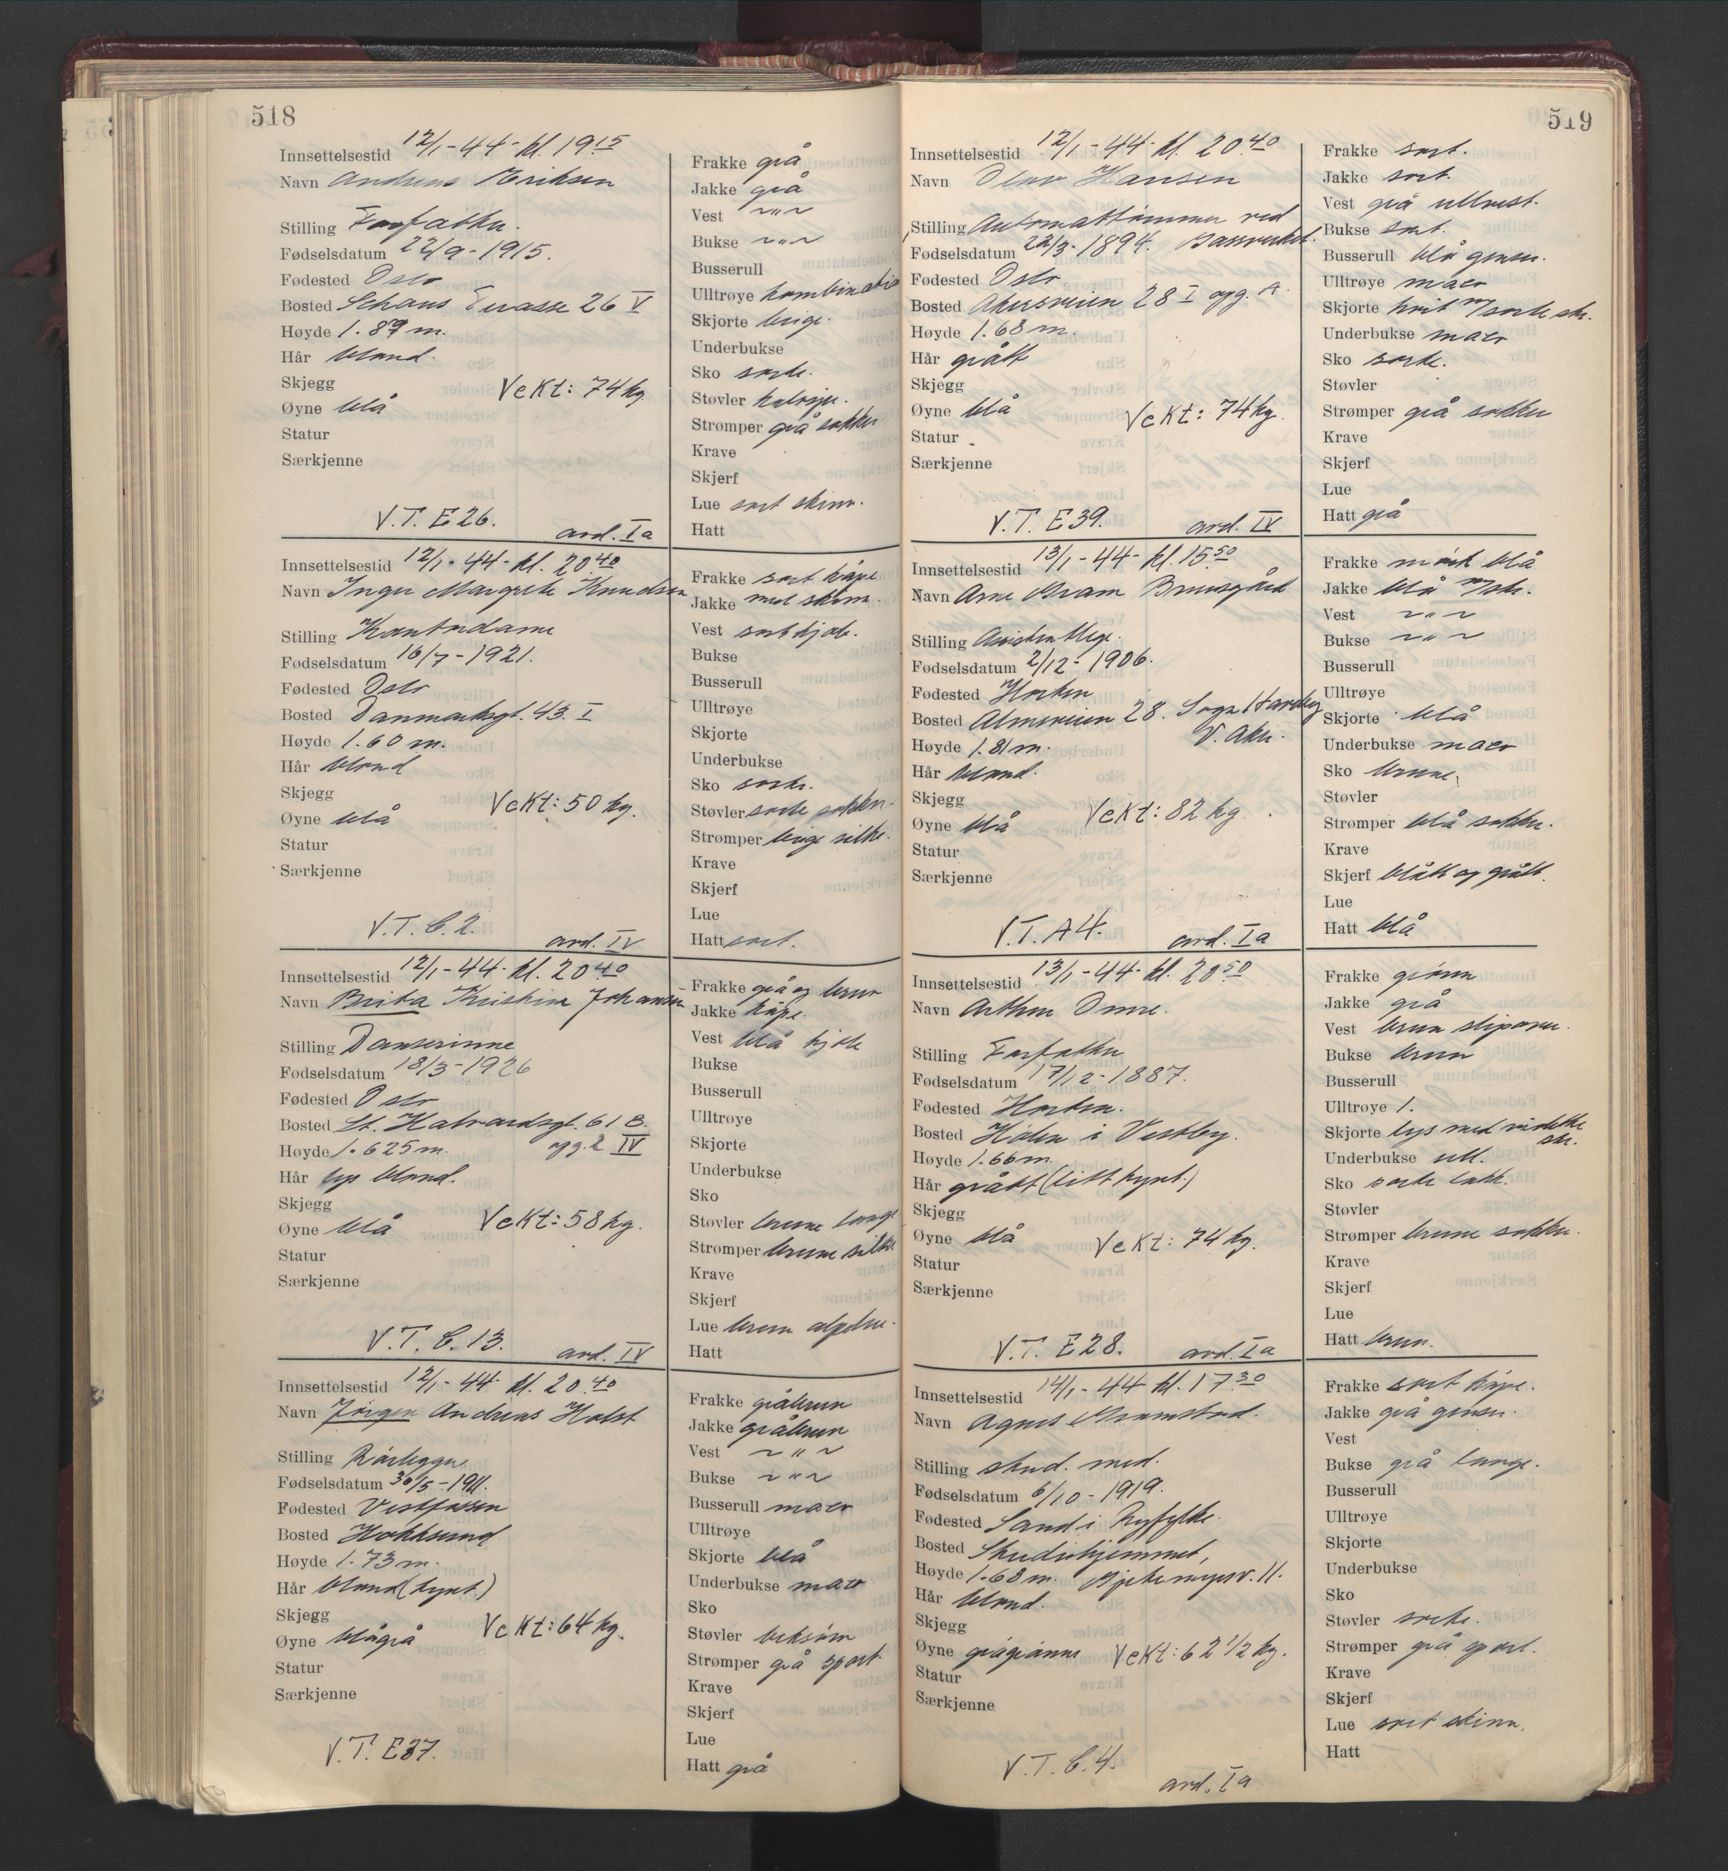 518
Innsettelsestid 12/1-44- kl. 19 15
Navn Andreas Eriksen
Stilling Forfatter.
Fødselsdatum 22/9-1915.
Fødested Oslo
Bosted Schaus Terasse 26 V
Høyde 1.89 m.
Hår blond.
Skjegg Vekt: 74 kg.
Øyne blå
Statur
Særkjenne
V.T. E 26. avd. Ia
Frakke grå
Jakke grå
Vest ~"~
Bukse ~"~
Busserull
Ulltrøye kombination
Skjorte beige.
Underbukse
Sko sorte.
Støvler kalosjer.
Strømper grå sokker
Krave
Skjerf
Lue sort skinn.
Hatt
Innsettelsestid 12/1-44- kl. 20.40
Navn Inger Margrete Knudsen
Stilling Kontordame
Fødselsdatum 16/7-1921.
Fødested Oslo
Bosted Danmarksgt. 43. I
Høyde 1.60 m.
Hår blond
Skjegg Vekt: 50 kg.
Øyne blå
Statur
Særkjenne
V.T. C. 2. avd. IV
Frakke sort kåpe
Jakke med skinn.
Vest sort kjole.
Bukse
Busserull
Ulltrøye
Skjorte
Underbukse
Sko sorte.
Støvler sorte sokker.
Strømper beige silke.
Krave
Skjerf
Lue
Hatt sort.
Innsettelsestid 12/1-44- kl. 20 40
Navn Brita Kristine Johansen
Stilling Danserinne
Fødselsdatum 18/3-1926
Fødested Oslo
Bosted St. Halvardsgt. 61 B.
Høyde 1.625 m. opg. 2 IV
Hår lys blond.
Skjegg
Øyne blå Vekt: 58 kg.
Statur
Særkjenne
V.T. C. 13. avd. IV
Frakke grå og brun
Jakke kåpe.
Vest blå kjole
Bukse
Busserull
Ulltrøye
Skjorte
Underbukse
Sko
Støvler brune lange
Strømper brune silke
Krave
Skjerf
Lue brun alpelue.
Hatt
Innsettelsestid 12/1-44- kl. 20.40
Navn Jørgen Andreas Holst
Stilling Rørlegger
Fødselsdatum 30/5-1911.
Fødested Vestfossen
Bosted Hokksund
Høyde 1.73 m.
Hår blond (tynt.)
Skjegg
Øyne blågrå Vekt: 64 kg.
Statur
Særkjenne
V.T. E37.
Frakke gråbrun
Jakke gråbrun
Vest ~"~
Bukse ~"~
Busserull maco
Ulltrøye
Skjorte blå
Underbukse maco
Sko
Støvler beksøm
Strømper grå sport
Krave
Skjerf
Lue
Hatt grå
519
Innsettelsestid 12/1-44- kl. 20.40
Navn Olav Hansen
Stilling Automattømmer ved
Fødselsdatum 22/3-1894. Gassverket.
Fødested Oslo
Bosted Akersveien 28 I opg. A.
Høyde 1.68 m.
Hår grått
Skjegg
Øyne blå Vekt: 74 kg.
Statur
Særkjenne
V.T. E 39. avd. IV
Frakke sort.
Jakke sort.
Vest grå ullvest.
Bukse sort.
Busserull blå genser.
Ulltrøye maco
Skjorte hvit m/sorte str.
Underbukse maco
Sko sorte.
Støvler
Strømper grå sokker
Krave
Skjerf
Lue
Hatt grå
Innsettelsestid 13/1-44- kl. 15.50
Navn Arne Bram Brunsgård
Stilling Assistentlege.
Fødselsdatum 2/12-1906.
Fødested Horten
Bosted Almeveien 28. Sogn Haveby
Høyde 1.81 m. V. Aker.
Hår blond.
Skjegg
Øyne blå Vekt: 82 kg.
Statur
Særkjenne
V.T. A4. avd. Ia
Frakke mørk blå
Jakke blå m/str.
Vest ~"~
Bukse ~"~
Busserull
Ulltrøye
Skjorte blå
Underbukse maco
Sko brune.
Støvler
Strømper blå sokker.
Krave
Skjerf blått og grått.
Lue
Hatt blå
Innsettelsestid 13/1-44- kl. 20 50
Navn Arthur Omre.
Stilling Forfatter
Fødselsdatum 17/12-1887.
Fødested Horten.
Bosted Hølen i Vestby.
Høyde 1.66 m.
Hår grått (litt tynt.)
Skjegg
Øyne blå Vekt: 74 kg.
Statur
Særkjenne
V.T. E28. avd. Ia
Frakke grønn
Jakke grå
Vest brun slipover.
Bukse brun
Busserull
Ulltrøye 1.
Skjorte lys med
str.
Underbukse ull.
Sko sorte lakk.
Støvler
Strømper brune sokker.
Krave
Skjerf
Lue
Hatt brun.
Innsettelsestid 14/1-44 kl. 17 30
Navn Agnes
Stilling stud. med.
Fødselsdatum 6/10-1919.
Fødested Sand i Ryfylke.
Bosted Studinehjemmet,
Høyde 1.68 m. Bjerkemyrsv. 11.
Hår blond.
Skjegg
Øyne grågrønne Vekt: 62 1/2 kg.
Statur
Særkjenne
V.T. C. 4. avd. Ia
Frakke sort kåpe.
Jakke grå genser.
Vest
Bukse grå lange.
Busserull
Ulltrøye
Skjorte
Underbukse
Sko
Støvler sorte.
Strømper grå sport.
Krave
Skjerf
Lue sort skinn.
Hatt